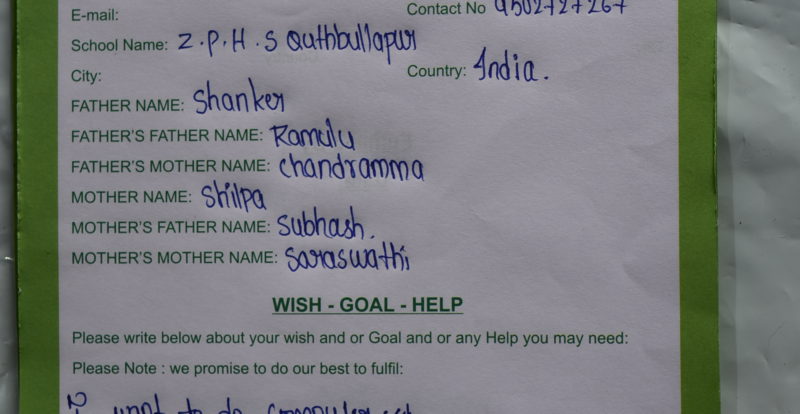 E-mail:
Contact No 9502727267
School Name: Z.P.H.S Quthbullapur
City:
Country: India.
FATHER NAME: Shanker
FATHER'S FATHER NAME: Ramulu
FATHER'S MOTHER NAME: Chandramma
MOTHER NAME: Shilpa
MOTHER'S FATHER NAME: Subhash.
MOTHER'S MOTHER NAME: Saraswathi
WISH - GOAL - HELP
Please write below about your wish and or Goal and or any Help you may need:
Please Note : we promise to do our best to fulfil:
I want to do